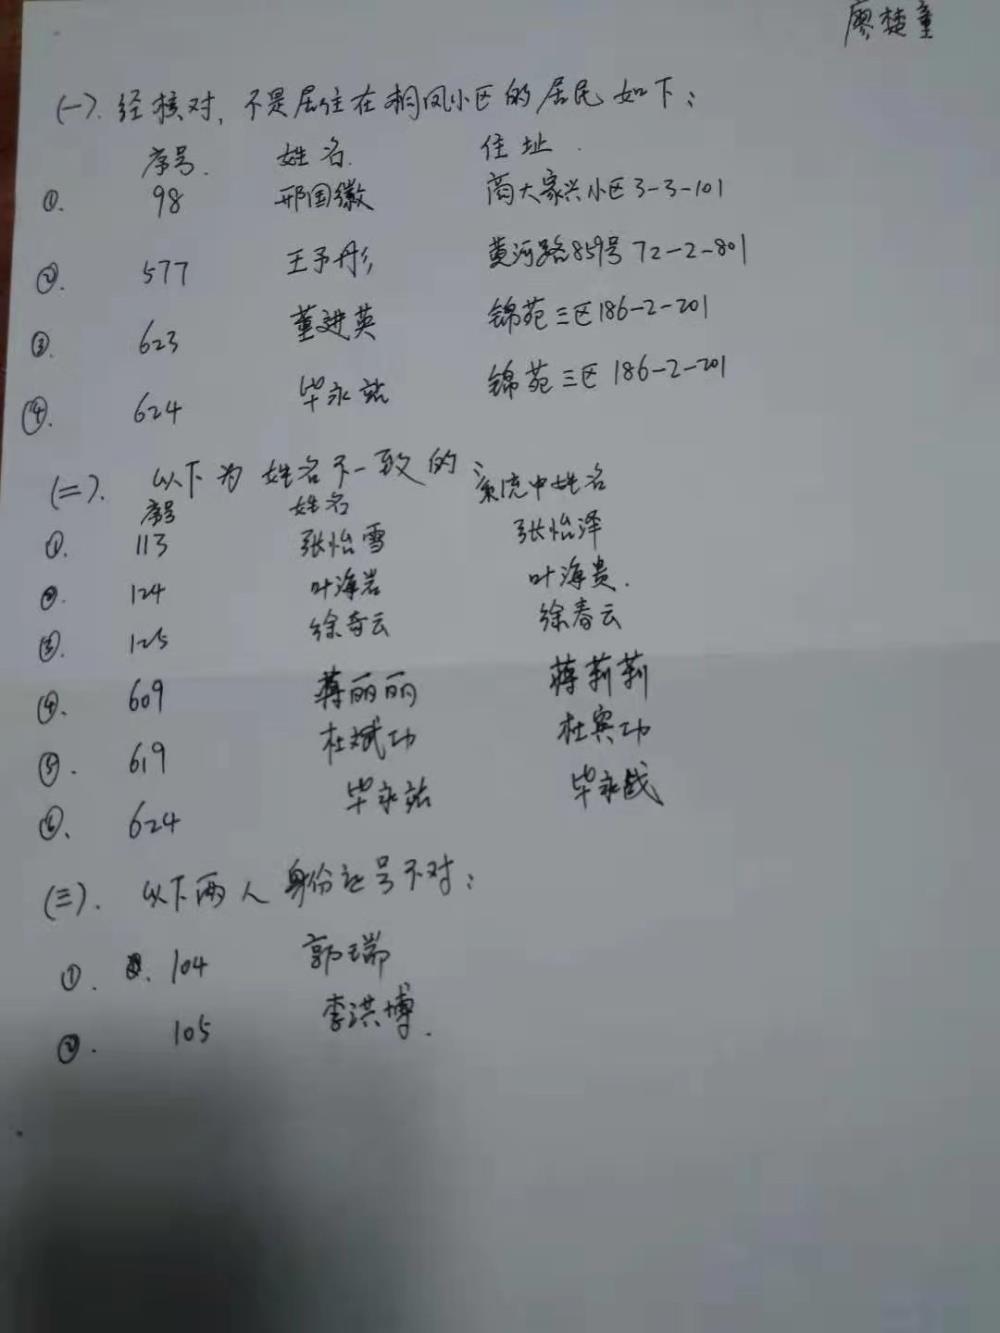 廖楚童
(一). 经核对, 不是居住在桐凤小区的居民如下:
序号. 姓名. 住址.
①. 98 邢国徽 商大家兴小区3-3-101
②. 577 王予彤 黄河路859号72-2-801
③. 623 董进英 锦苑三区186-2-201
④. 624 毕永站 锦苑三区186-2-201
(二). 以下为姓名不一致的:
序号 姓名 系统中姓名
①. 113 张怡雪 张怡泽
②. 124 叶海岩 叶海贵.
③. 125 徐奇云 徐春云
④. 609 蒋丽丽 蒋莉莉
⑤. 619 杜斌功 杜宾功
⑥. 624 毕永站 毕永战
(三). 以下两人身份证号不对:
①. 104 郭瑞
②. 105 李洪博.